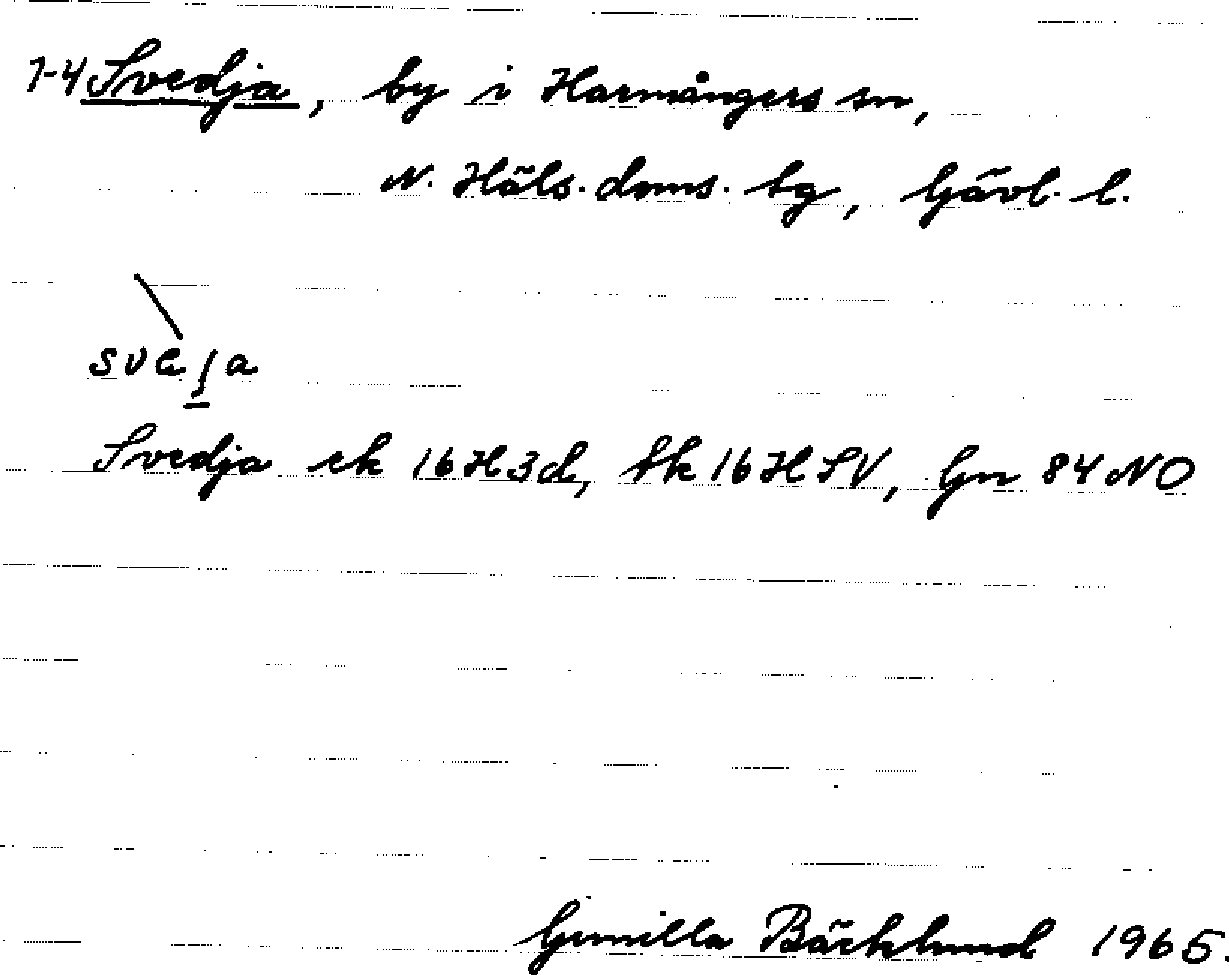 1-4 Svedja, by i Harmångers sn,
N. Häls. doms. tg, Gävl. l.
Svedja ek 16H3d, tk 16HSV, Gn 84 NO
Gunilla Bäcklund 1965.